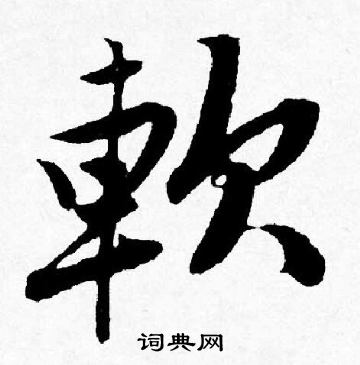 軟
词典网